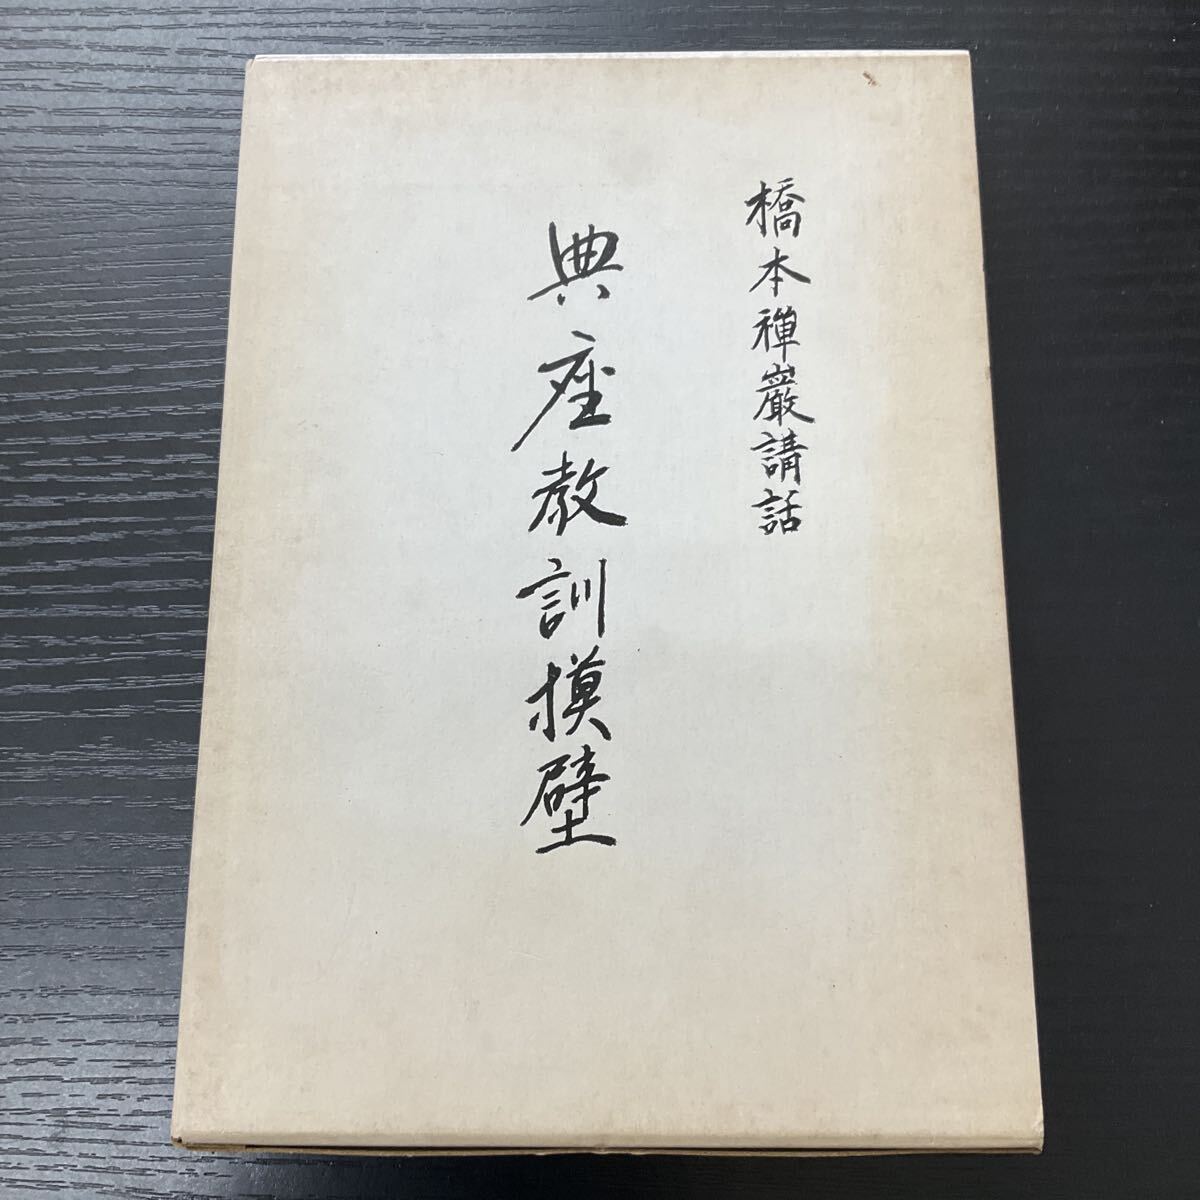 橋本禅巌講話
典座教訓摸壁